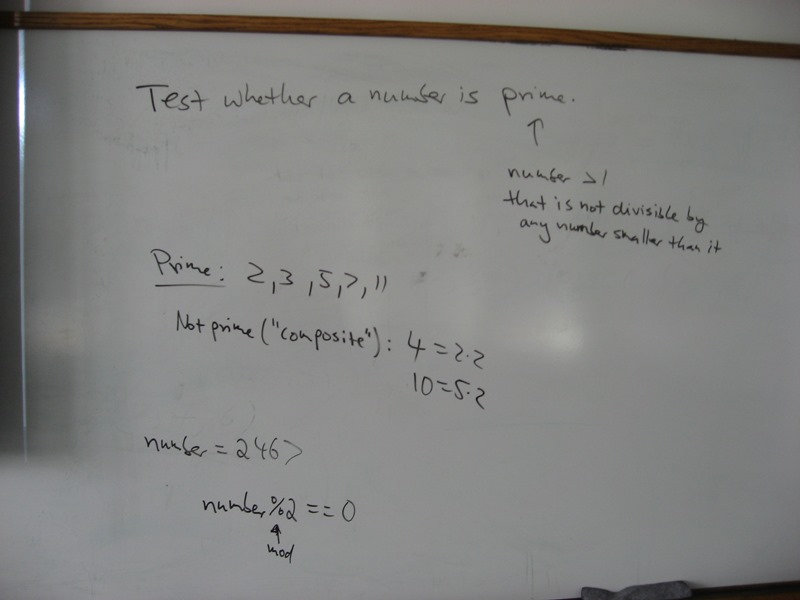 Test whether a number is prime.
↑
number >1
that is not divisible by
any number smaller than it
Prime: 2, 3, 5, 7, 11
Not prime ("composite"): 4 = 2·2
10 = 5·2
number = 2467
number%2 == 0
↑
mod